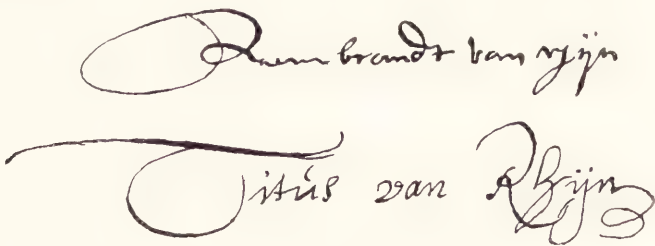 Rembrandt van rijn
Titus van Rhijn